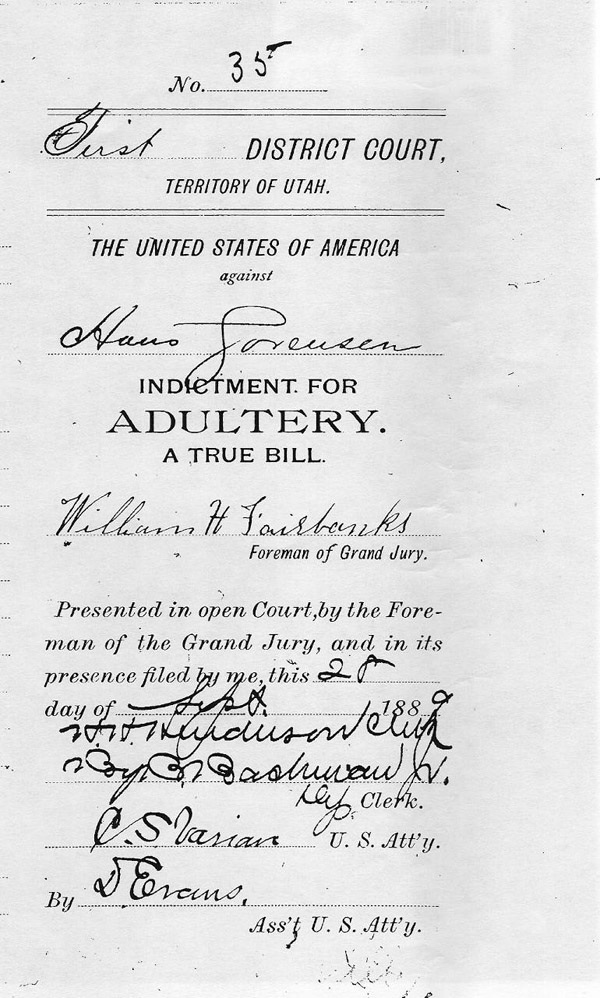 No. 35
First DISTRICT COURT,
TERRITORY OF UTAH.
THE UNITED STATES OF AMERICA
against
Hans Sorensen
INDICTMENT. FOR
ADULTERY.
A TRUE BILL.
William H Fairbanks
Foreman of Grand Jury.
Presented in open Court, by the Fore-
man of the Grand Jury, and in its
presence filed by me, this 28
day of Sept. 1889
H. H. Henderson Clerk
By B Bachman Jr.
Dep. Clerk.
C. S Varian U. S. Att'y.
By D Evans.
Ass't U. S. Att'y.